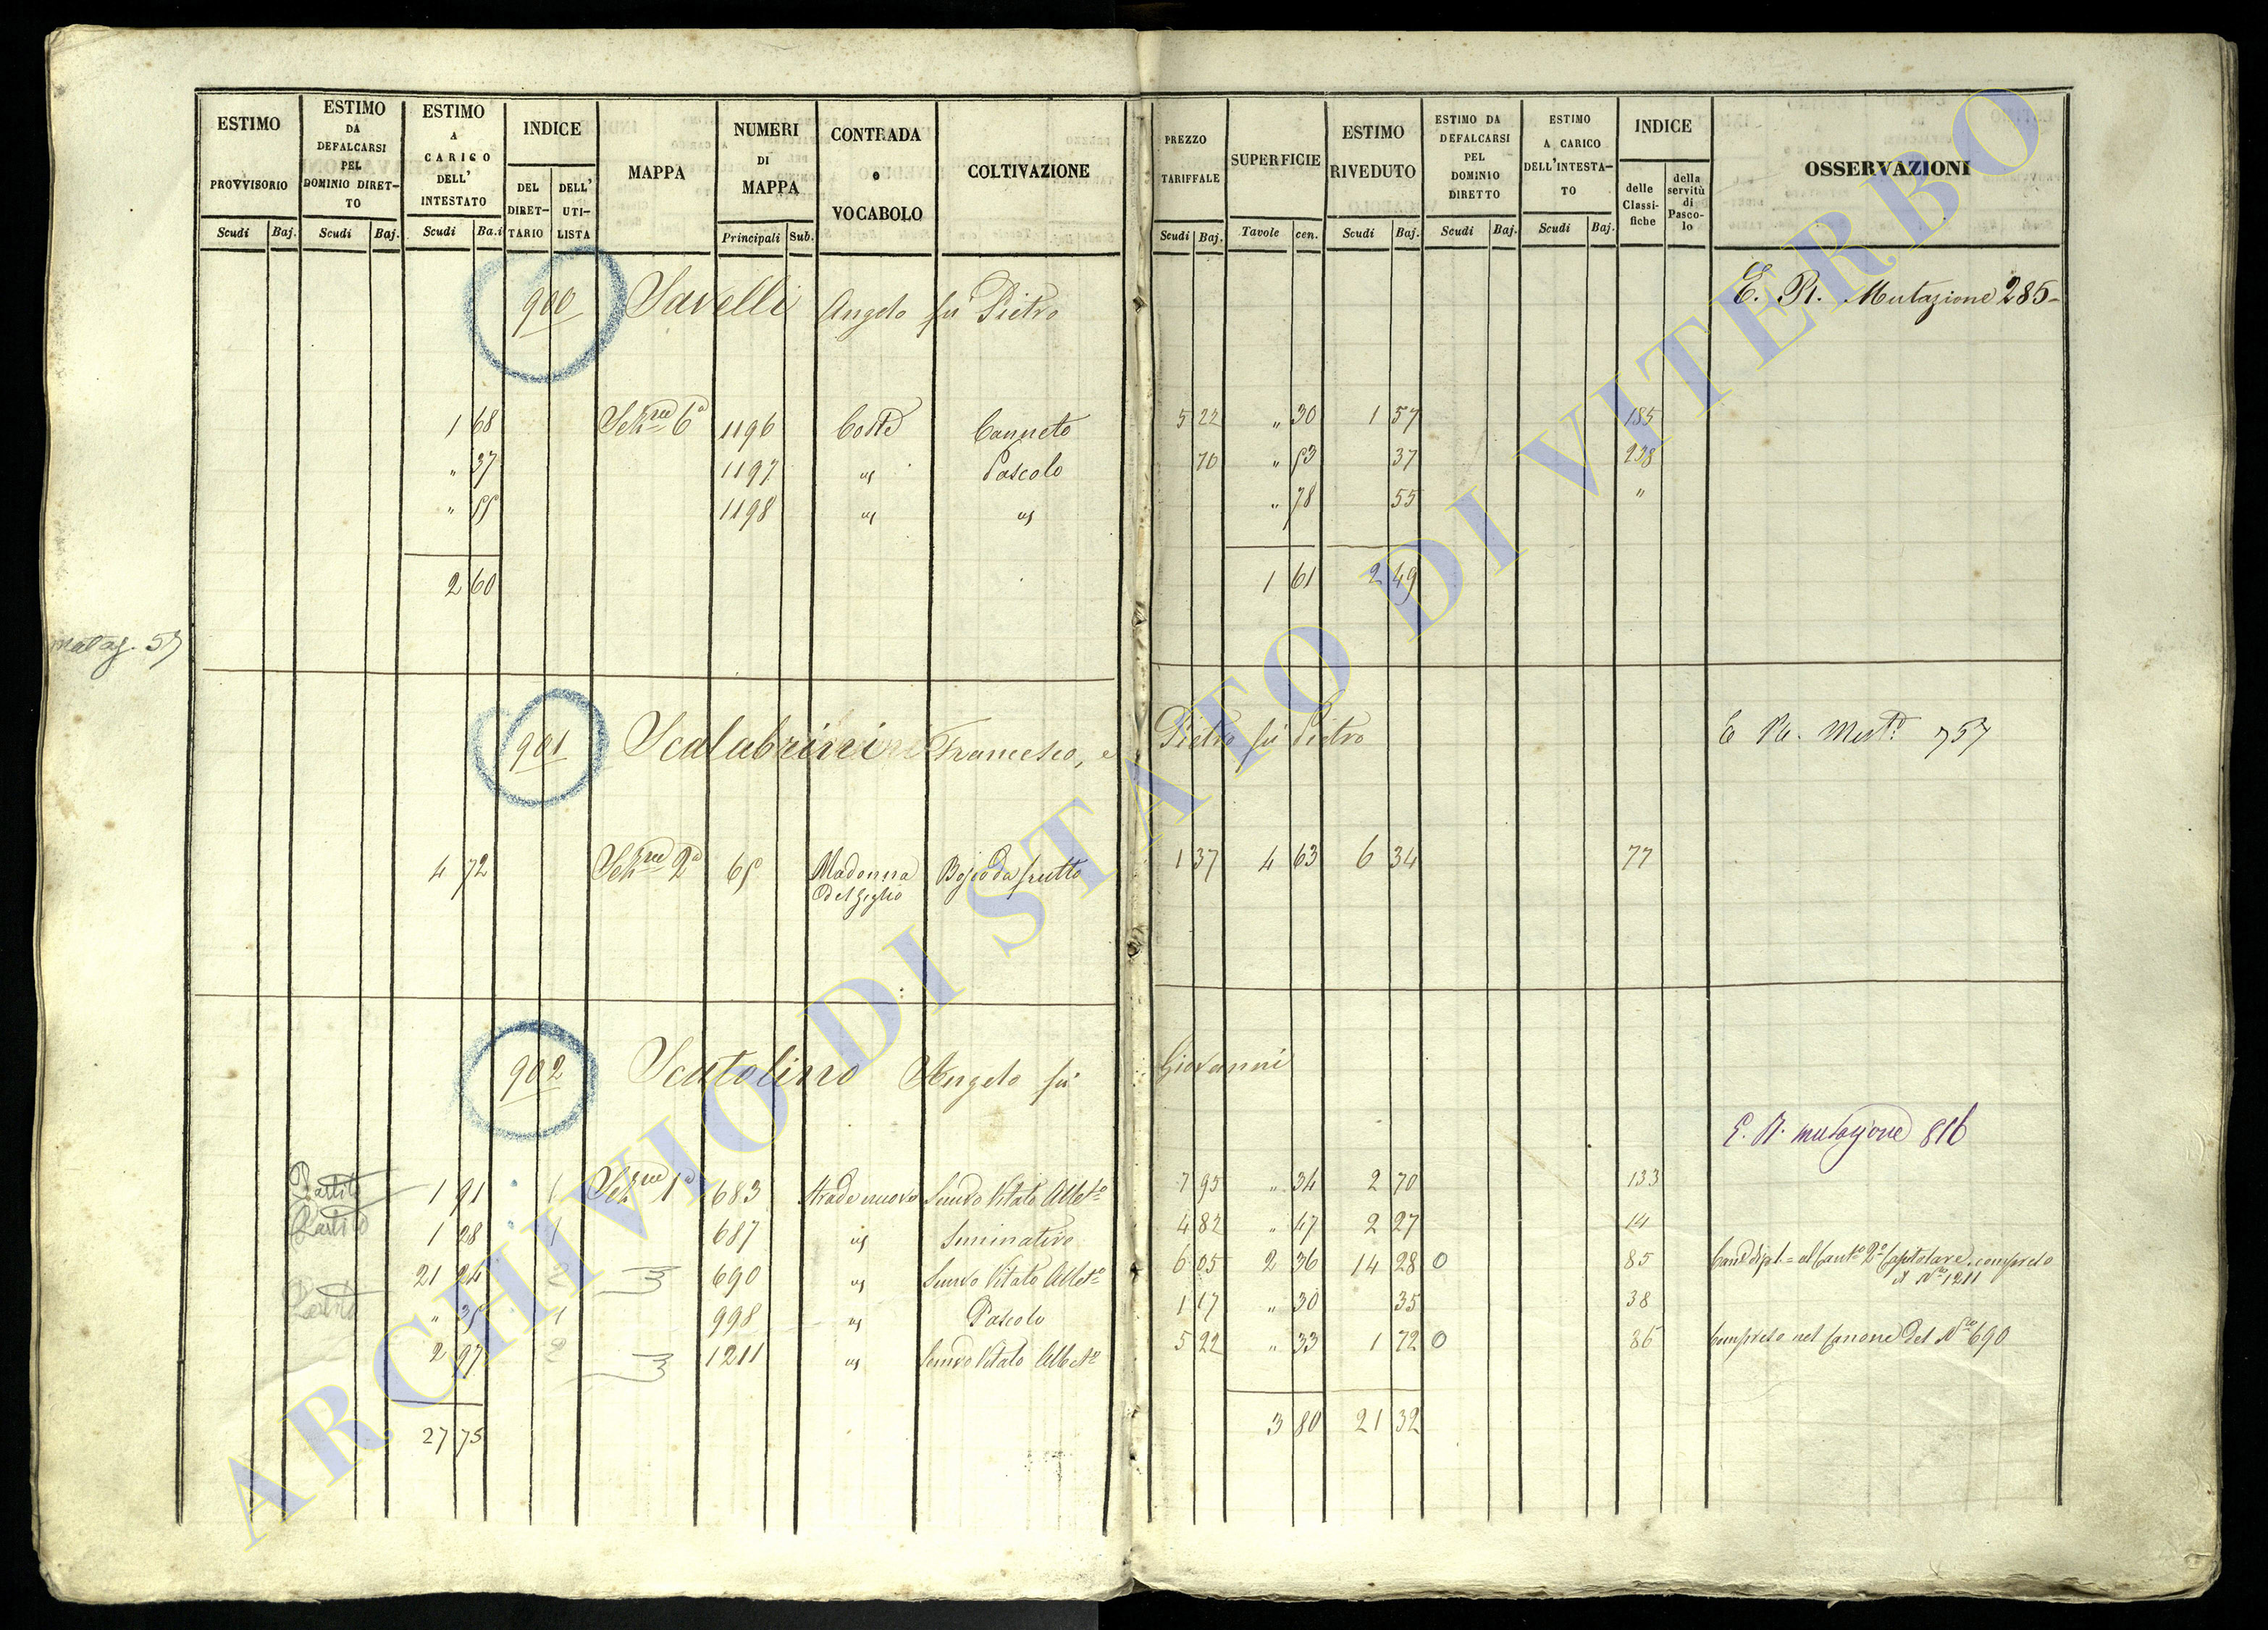 ESTIMO PROVVISORIO Scudi Baj.
ESTIMO DA DEFALCARSI PEL DOMINIO DIRET-TO Scudi Baj.
ESTIMO A CARICO DELL' INTESTATO Scudi Ba.i
INDICE DEL DIRET-TARIO DELL' UTI-LISTA
MAPPA
NUMERI DI MAPPA Principali Sub.
CONTRADA o VOCABOLO
COLTIVAZIONE
PREZZO TARIFFALE Scudi Baj.
SUPERFICIE Tavole cen.
ESTIMO RIVEDUTO Scudi Baj.
ESTIMO DA DEFALCARSI PEL DOMINIO DIRETTO Scudi Baj.
ESTIMO A CARICO DELL'INTESTA-TO Scudi Baj.
INDICE delle Classi-fiche della servitù di Pasco-lo
OSSERVAZIONI
900 Savelli Angelo fu Pietro E. R. Mutazione 285
1 68 Sez.ne 6a 1196 Coste Canneto 5 22 " 30 1 57 185
" 37 1197 " Pascolo 70 " 53 37 238
" 55 1198 " " " 78 55 "
2 60 1 61 2 49
901 Scalabrini Francesco, e Pietro fu Pietro 757
4 72 Sez.ne 2a 65 Madonna del Giglio da frutto 1 37 4 63 6 34 77
902 Scutolino Angelo fu Giovanni
E. R. mutazione 816
Partita 1 91 1 Sez.ne 1a 683 Strada nuova Semvo Vitato Albto 7 95 " 34 2 70 133
Partita 1 28 1 687 " Seminativo 4 82 " 47 2 27 14
21 24 2 690 " Semvo Vitato Albto 6 05 2 36 14 28 0 85 compreso il No 1211
Partita " 35 1 998 " Pascolo 1 17 " 30 35 38
2 97 2 1211 " Semvo Vitato Albto 5 22 " 33 1 72 0 86 Compreso nel Canone del No 690
27 75 3 80 21 32
ARCHIVIO DI STATO DI VITERBO